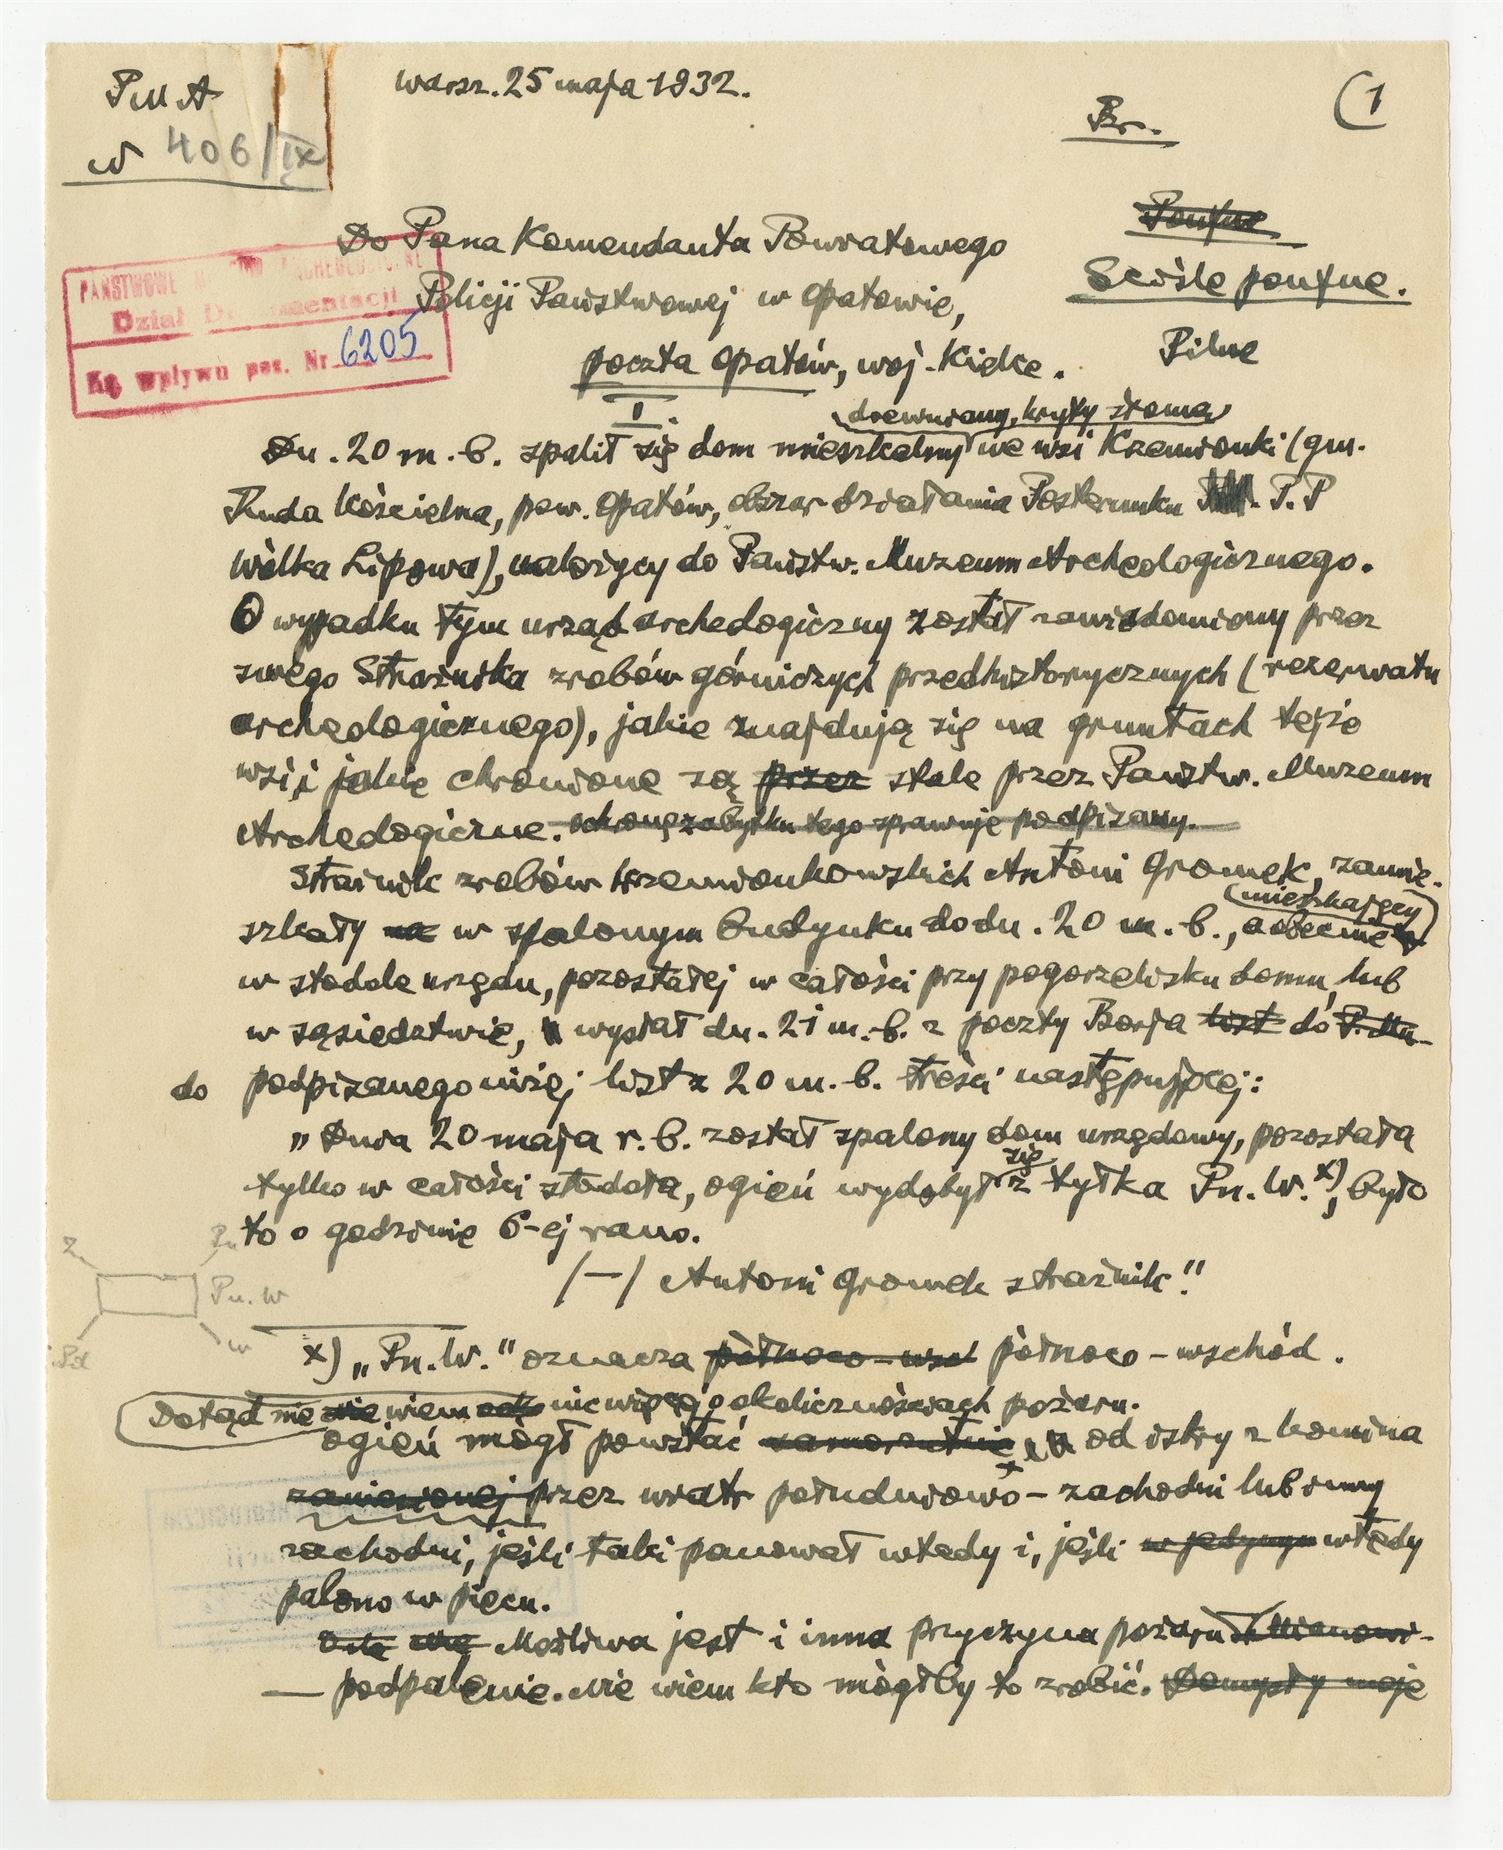 PMA
w 406/IX
Warsz. 25 maja 1932.
Br.
(1
Poufne
Ściśle poufne.
Pilne
Do Pana Komendanta Powiatowego
Policji Państwowej w Opatowie,
poczta Opatów, woj. Kielce.
PAŃSTWOWE MUZEUM ARCHEOLOGICZNE
Dział Dokumentacji
Kg. wpływu poz. Nr. 6205
I.
drewniany, kryty słomą
Dn. 20 m. b. spalił się dom mieszkalny we wsi Krzemionki (gm.
Ruda Kościelna, pow. Opatów, obszar działania Posterunku P.P
Wólka Lipowa), należący do Państw. Muzeum Archeologicznego.
O wypadku tym urząd archeologiczny został zawiadomiony przez
swego Strażnika zrobów górniczych przedhistorycznych (rezerwatu
archeologicznego), jakie znajdują się na gruntach tejże
wsi, i jakie chronione są przez stale przez Państw. Muzeum
Archeologiczne. ochronę zabytku tego sprawuje podpisany.
Strażnik zrobów krzemionkowskich Antoni Gromek, zamie-
mieszkający
szkały na w spalonym budynku do dn. 20 m. b., a obecnie
w stodole urzędu, pozostałej w całości przy pogorzelisku domu, lub
w sąsiedztwie, wysłał dn. 21 m. b. z poczty Borja list do P. Mu-
do podpisanego niżej list z 20 m. b. treści następującej:
„Dnia 20 maja r. b. został spalony dom urzędowy, pozostała
tylko w całości stodoła, ogień wydobył się z tyłka Pn. W. x), było
to o godzinie 6-ej rano.
/—/ Antoni Gromek strażnik."
Z Pn
Pn. W
Pd W
x) „Pn. W." oznacza północo-wsch północo-wschód.
Dotąd nie wiem nic więcej o okolicznościach pożaru.
Ogień mógł powstać samorzutnie, od iskry z komina
zaniesionej przez wiatr południowo-zachodni lub inny
zachodni, jeśli taki panował wtedy i, jeśli w jedynym wtedy
palono w piecu.
Możliwa jest i inna przyczyna pożaru Mianowi-
— podpalenie. Nie wiem kto mógłby to zrobić. Domysły moje